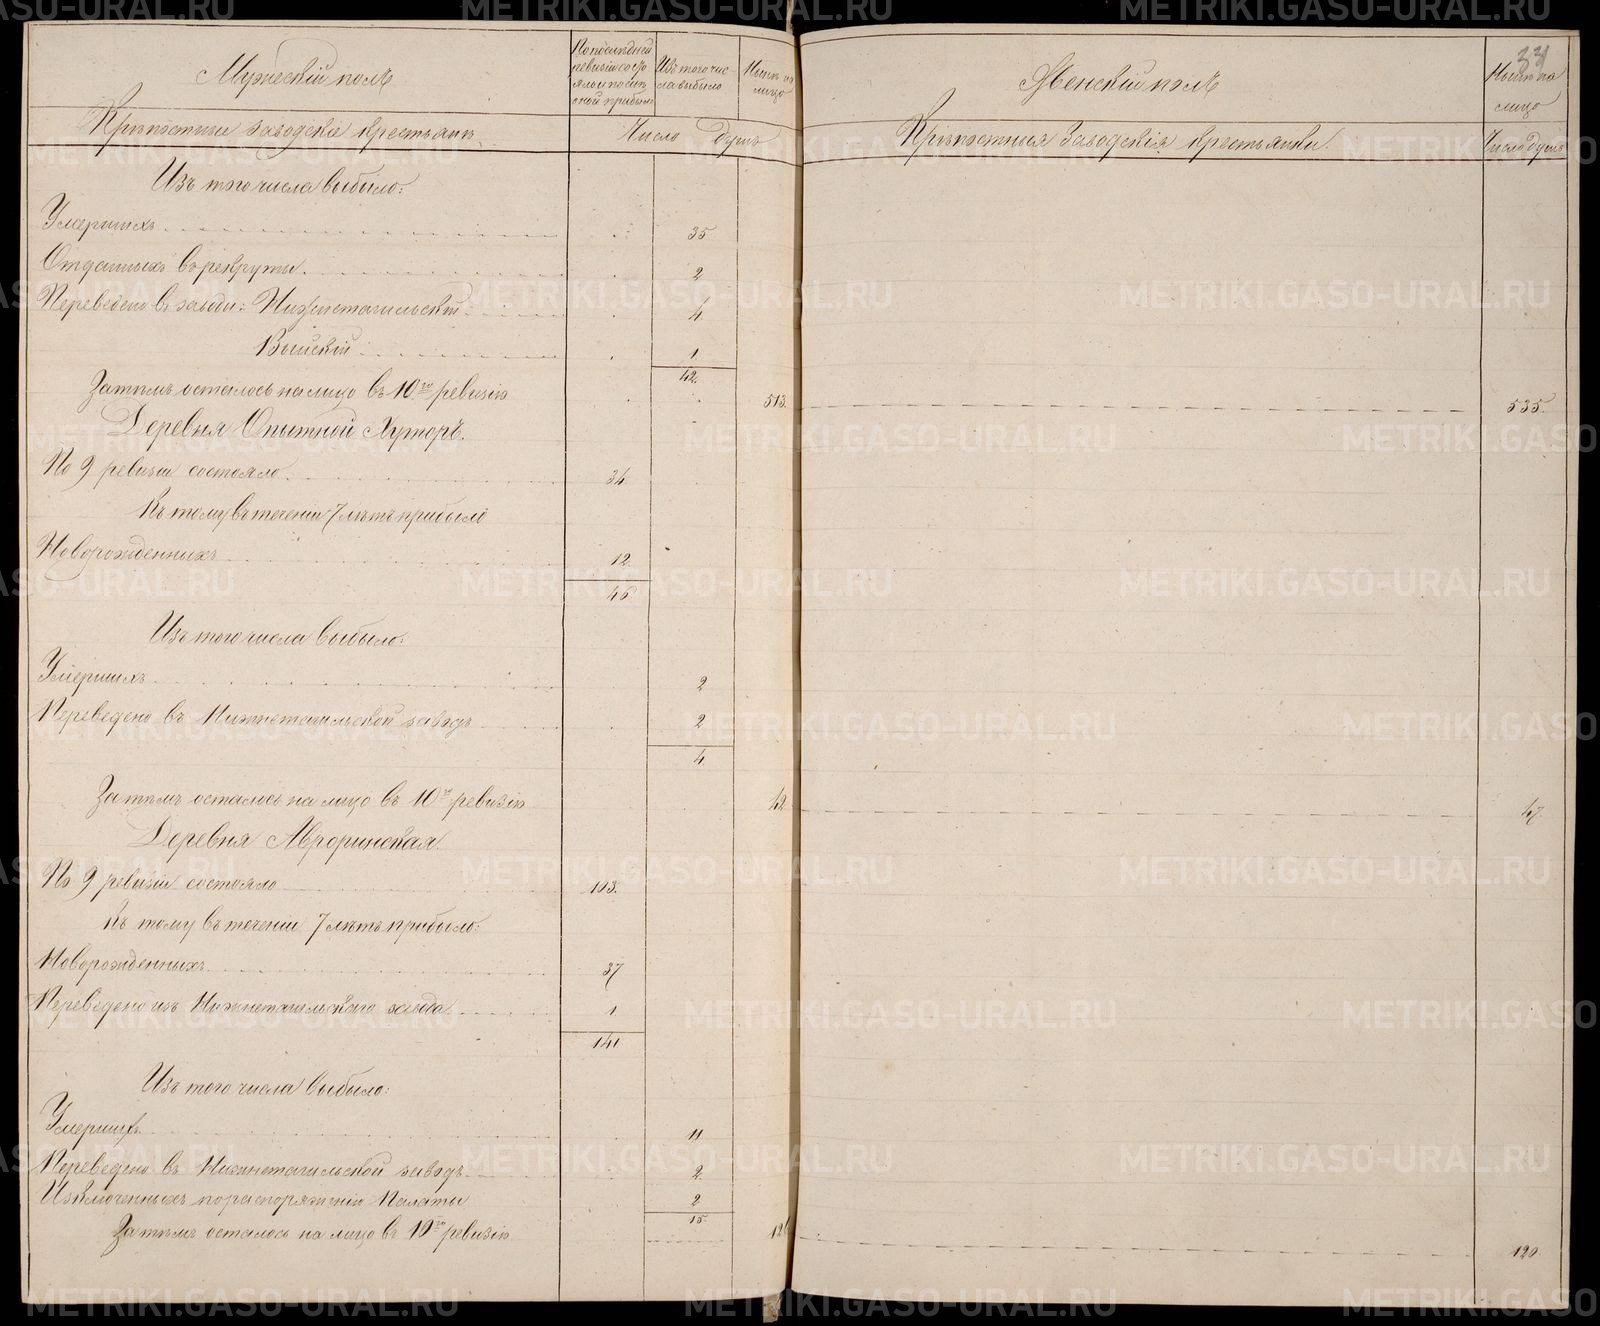 Мужескій полъ
По последней ревизіи состояло и после оной прибыло
Изъ того числа выбыло
Нынѣ на лицо
Крѣпостные заводскіе крестьяне
Число душъ
Изъ того числа выбыло:
Умершихъ 35
Отданныхъ въ рекруты 2
Переведено въ заводы: Нижнетагильскій 4.
Выйскій 1.
42.
Затѣмъ осталось на лицо въ 10ю ревизію 513.
Деревня Опытной Хуторъ.
По 9 ревизіи состояло 34
Къ тому въ теченіи 7 лѣтъ прибыло
Новорожденныхъ 12.
46.
Изъ того числа выбыло:
Умершихъ 2
Переведено въ Нижнетагильской заводъ 2
4.
Затѣмъ осталось на лицо въ 10ю ревизію 42.
Деревня Авроринская.
По 9 ревизіи состояло 103.
Къ тому въ теченіи 7 лѣтъ прибыло:
Новорожденныхъ 37
Переведено изъ Нижнетагильскаго завода 1
141
Изъ того числа выбыло:
Умершихъ 11
Переведено въ Нижнетагильской заводъ 2.
Изключенныхъ по распоряженію Палаты 2
15.
Затѣмъ осталось на лицо въ 10ю ревизію 126
Женскій полъ
Нынѣ на лицо
Крѣпостныя Заводскія крестьянки.
Число душъ
535.
47.
120.
METRIKI.GASO-URAL.RU